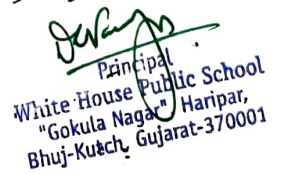 Principal
White House Public School
"Gokula Nagar" Haripar,
Bhuj-Kutch, Gujarat-370001